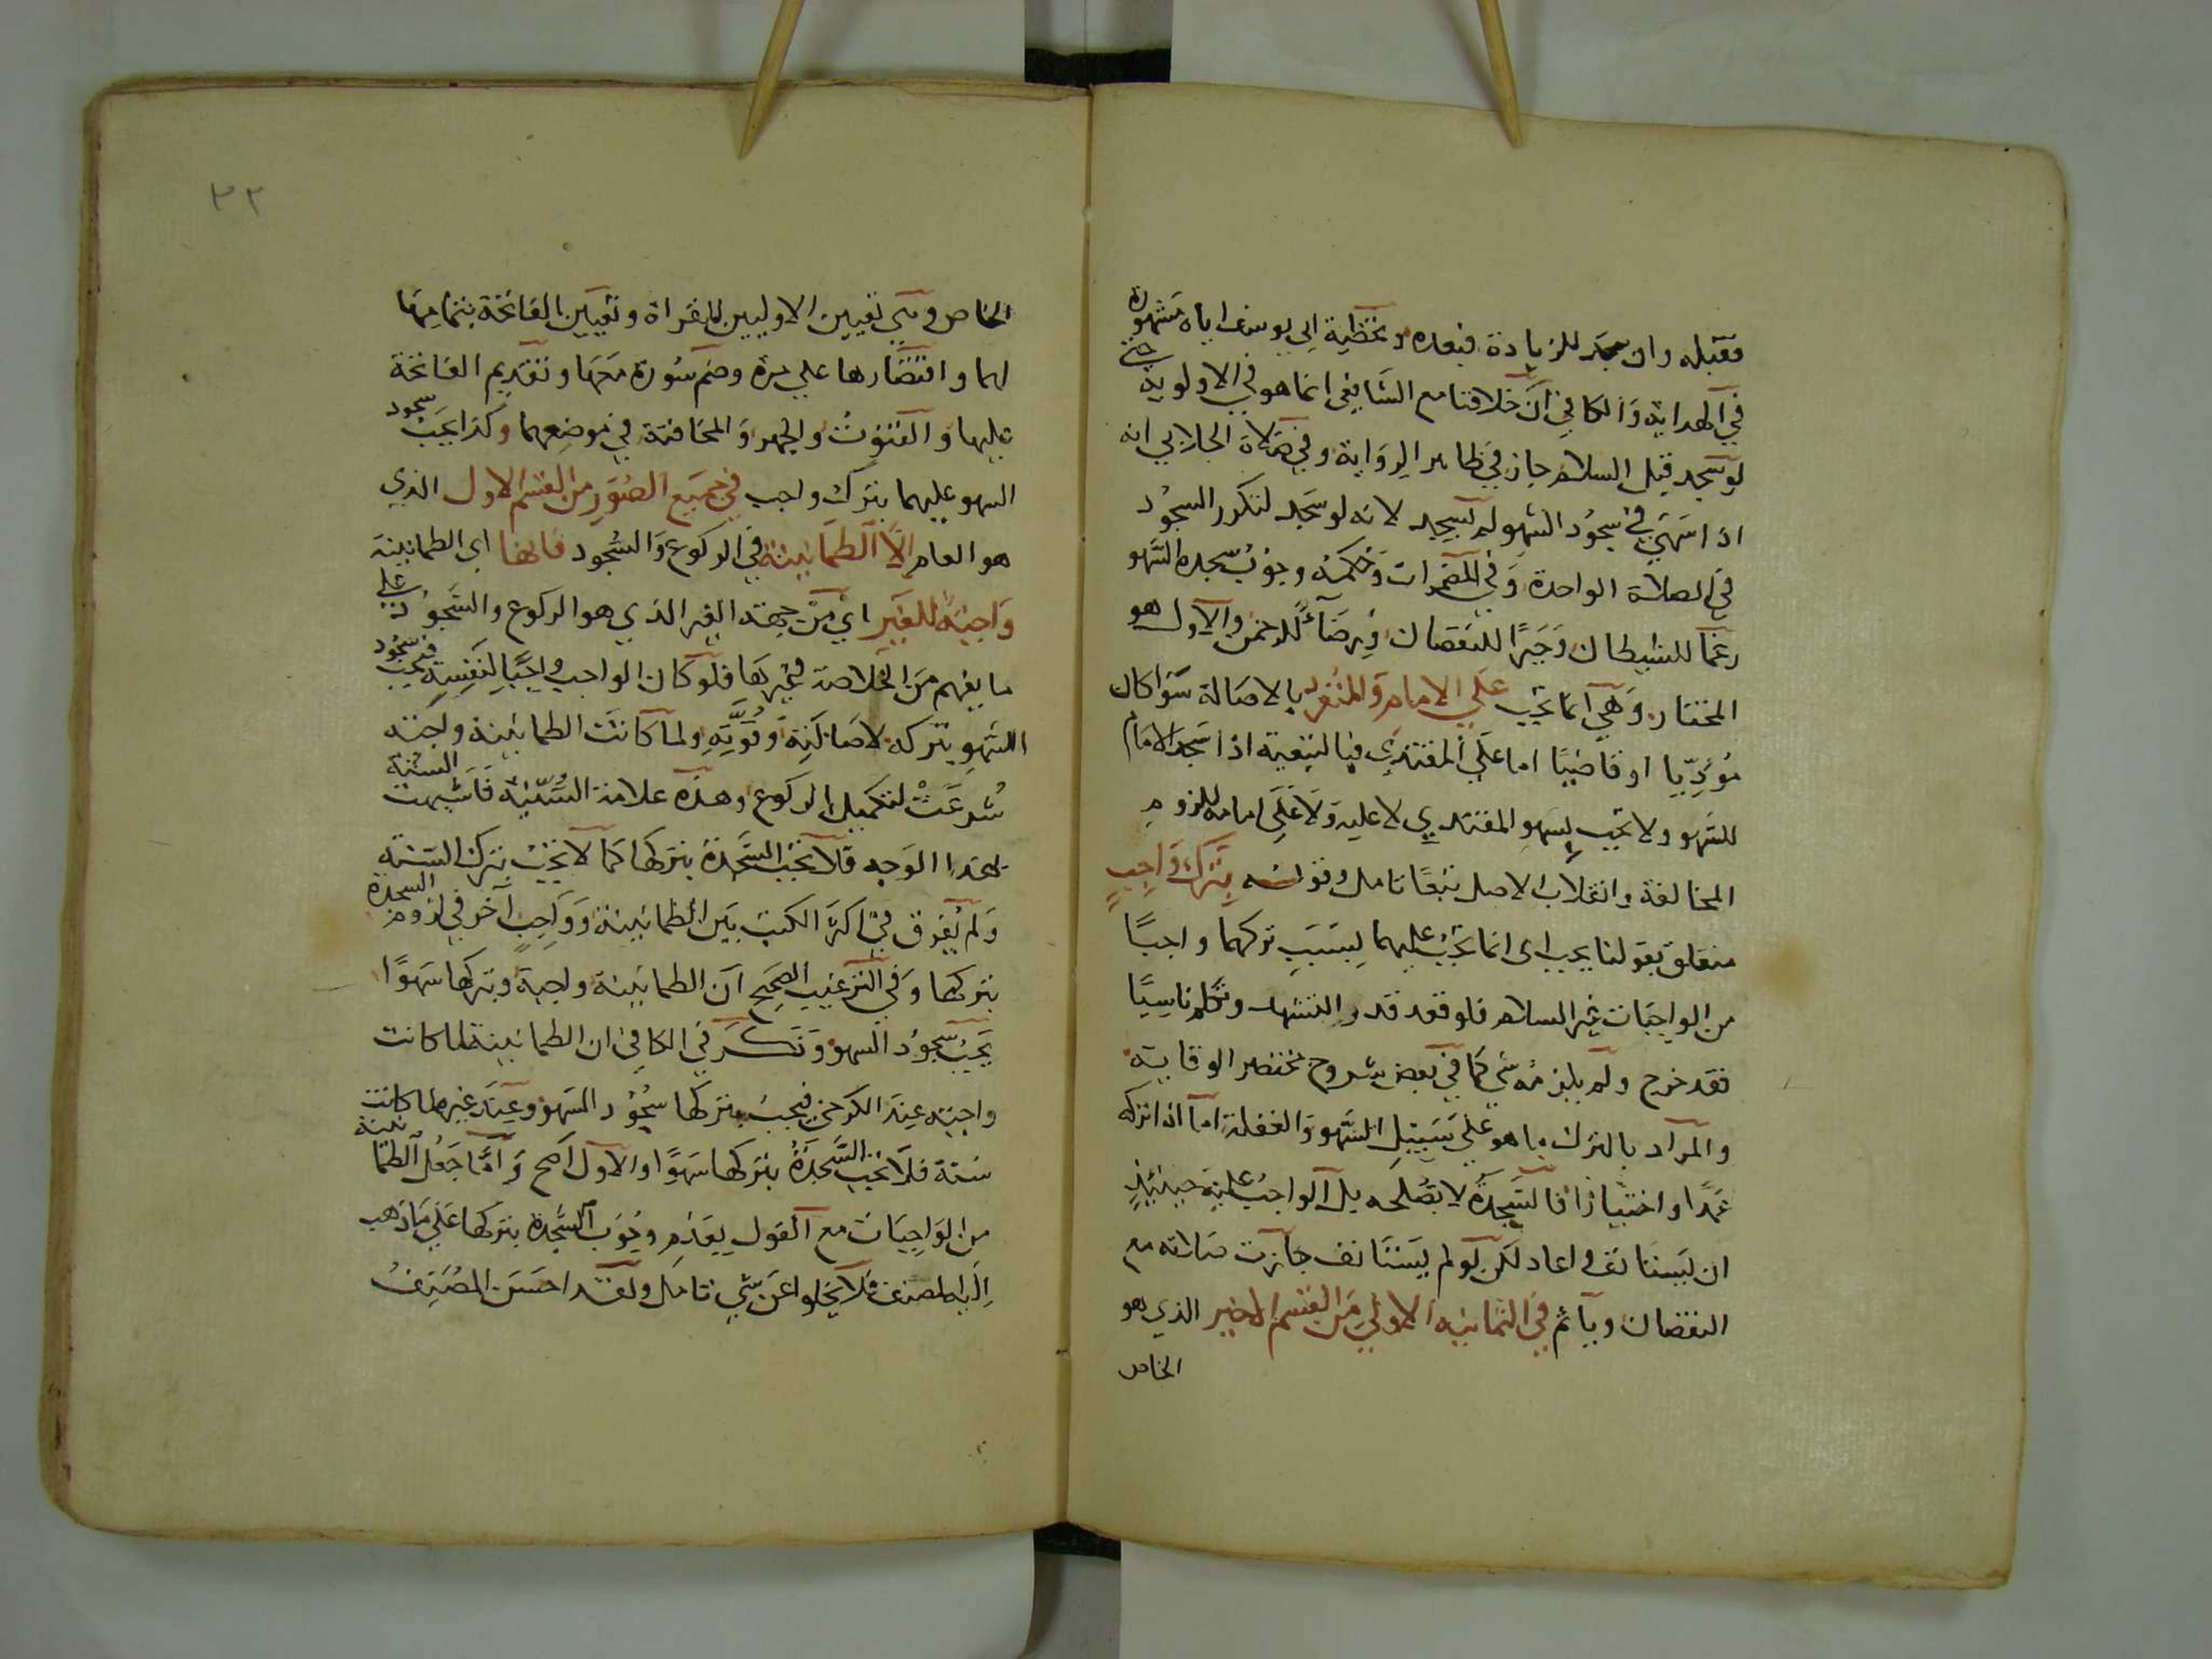 فقبله وان سجد للزيادة فبعده وتخطية ابي يوسف اياه مشهورة
في الهداية والكافي ان خلافنا مع الشافعي انما هو في الاولوية حتى
لو سجد قبل السلام جاز في ظاهر الرواية وفي صلاة الجلابي انه
اذا سهي في سجود السهو لم يسجد لانه لو سجد لتكرر السجود
في الصلاة الواحدة وفي المضمرات وحكمة وجوب سجدة السهو
رغما للشيطان وجبرًا للنقصان ورضآءً للرحمن والاول هو
المختار وهي انما تجب علي الامام والمنفرد بالاصالة سوا كان
مؤدّيا او قاضيًا اما علي المقتدي فبالتبعية اذا سجد الامام
للسهو ولا تجب بسهو المقتدي لا عليه ولا علي امامه للزوم
المخالفة وانقلاب الاصل تبعًا تامل وقوله بترك واجبٍ
متعلق بقولنا يجب اى انما تجب عليهما بسبب تركهما واجبًا
من الواجبات غير السلام فلو قعد قدر التشهد وتكلم ناسيًا
فقد خرج ولم يلزمه شي كما في بعض شروح مختصر الوقاية
والمراد بالترك ما هو علي سبيل السهو والغفلة اما اذا تركه
عمدًا واختيارًا فالسجدة لا تصلحه بل الواجب عليه حينئذٍ
ان يستانف واعاد لكن لو لم يستانف جازت صلاته مع
النقصان وياثم في الثمانية الاولي من القسم الاخير الذي هو
الخاص
٣٢
الخاص وهي تعيين الاوليين للقراة وتعيين الفاتحة بتمامها
لهما واقتصارها علي مرة وضم سورة معها وتقديم الفاتحة
عليها والقنوت والجهر والمخافتة في موضعهما وكذا يجب سجود
السهو عليهما بترك واجب في جميع الصور من القسم الاول الذي
هو العام الّا الطمانينة في الركوع والسجود فانها اي الطمانينة
واجبة للغير اي من جهة الغير الذي هو الركوع والسجود علي
ما يفهم من الخلاصة وغيرها فلو كان الواجب واجبًا لنفسه يجب سجود
السهو بتركه لاصالته وقوّته ولما كانت الطمانينة واجبة
شرعت لتكميل الركوع وهذه علامة السُّنّية فاشبهت السنة
بهذا الوجه فلا تجب السجدة بتركها كما لا تجب بترك السنة
ولم يفرق في اكثر الكتب بين الطمانينة وواجبٍ آخر في لزوم السجدة
بتركها وفي الترغيب الصحيح ان الطمانينة واجبة وبتركها سهوًا
يجب سجود السهو وذكر في الكافي ان الطمانينة لما كانت
واجبة عند الكرخي فيجب بتركها سجود السهو وعند غيره لما كانت
سنة فلا تجب السجدة بتركها سهوًا والاول اصح وامّا جعل الطمانينة
من الواجبات مع القول بعدم وجوب السجدة بتركها علي ما ذهب
اليه المصنف فلا يخلوا عن شي تامل ولقد احسن المصنف